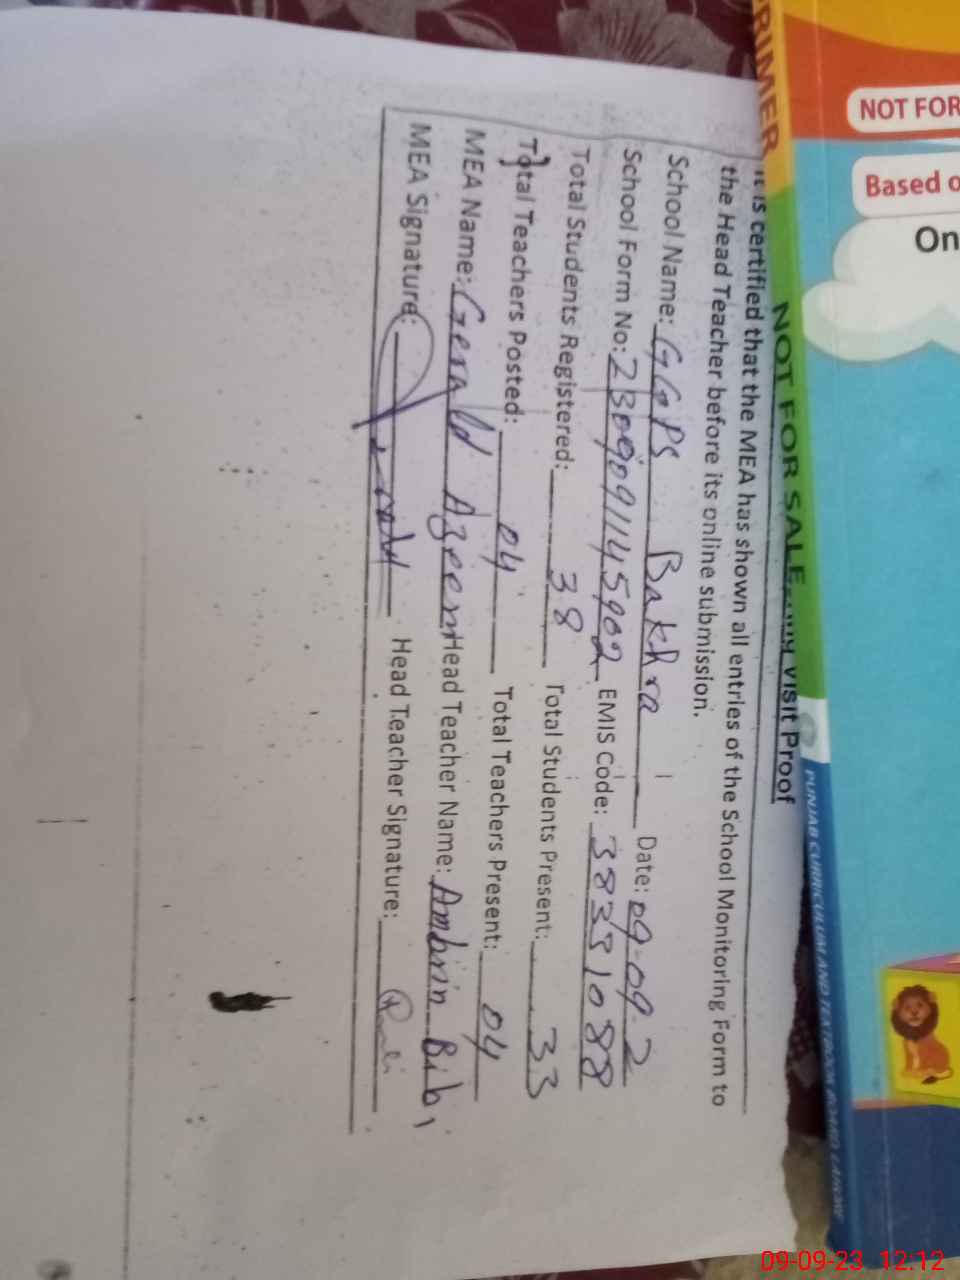 PRIMER
NOT FOR
Based o
On
NOT FOR SALE
PUNJAB CURRICULUM AND TEXTBOOK BOARD LAHORE
Visit Proof
It is certified that the MEA has shown all entries of the School Monitoring Form to
the Head Teacher before its online submission.
School Name: GGPS Bakhra Date: 09-09-2
School Form No: 2309091145902 EMIS Code: 38331088
Total Students Registered: 38 Total Students Present: 33
Total Teachers Posted: 04 Total Teachers Present: 04
MEA Name: Gerald Azeem Head Teacher Name: Ambrin Bibi
MEA Signature: Head Teacher Signature:
09-09-23 12:12